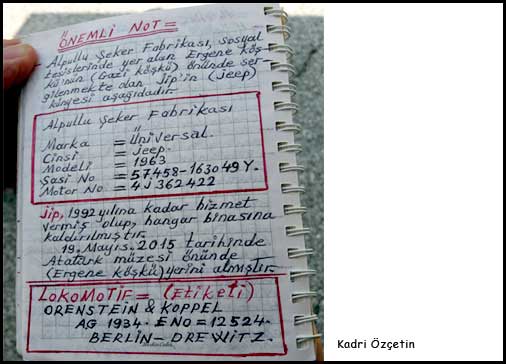 ÖNEMLİ NOT =
- Alpullu Şeker Fabrikası, sosyal
tesislerinde yer alan Ergene köş-
kü'nün (Gazi köşkü) önünde ser-
gilenmekte olan Jip'in (jeep)
künyesi aşağıdadır.
Alpullu Şeker Fabrikası
Marka = Üniversal.
Cinsi = jeep.
Modeli = 1963
Şasi No = 57458-163049Y.
Motor No = 4J362422
Jip, 1992 yılına kadar hizmet
vermiş olup, hangar binasına
kaldırılmıştır.
19. Mayıs. 2015 tarihinde
Atatürk müzesi önünde
(Ergene köşkü) yerini almıştır.
LOKOMOTİF = (Etiketi)
ORENSTEIN & KOPPEL
AG 1934. ENO = 12524.
BERLIN - DREWITZ.
Kadri Özçetin